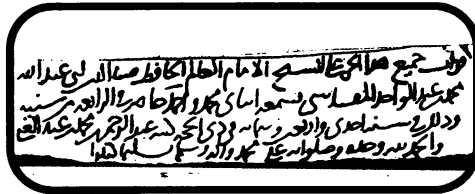 قرأت جميع هذا الجزء على الشيخ الامام العالم الحافظ ضيا الدين ابي عبد الله
محمد بن عبد الواحد المقدسي فسمعه ابناي محمد واحمد حاضر في الرابعة
وذلك في سنة احدى واربعين وستمائة وكتب عبد الرحمن بن محمد بن عبد الغني
والحمد لله وحده وصلواته على محمد واله وسلم تسليما